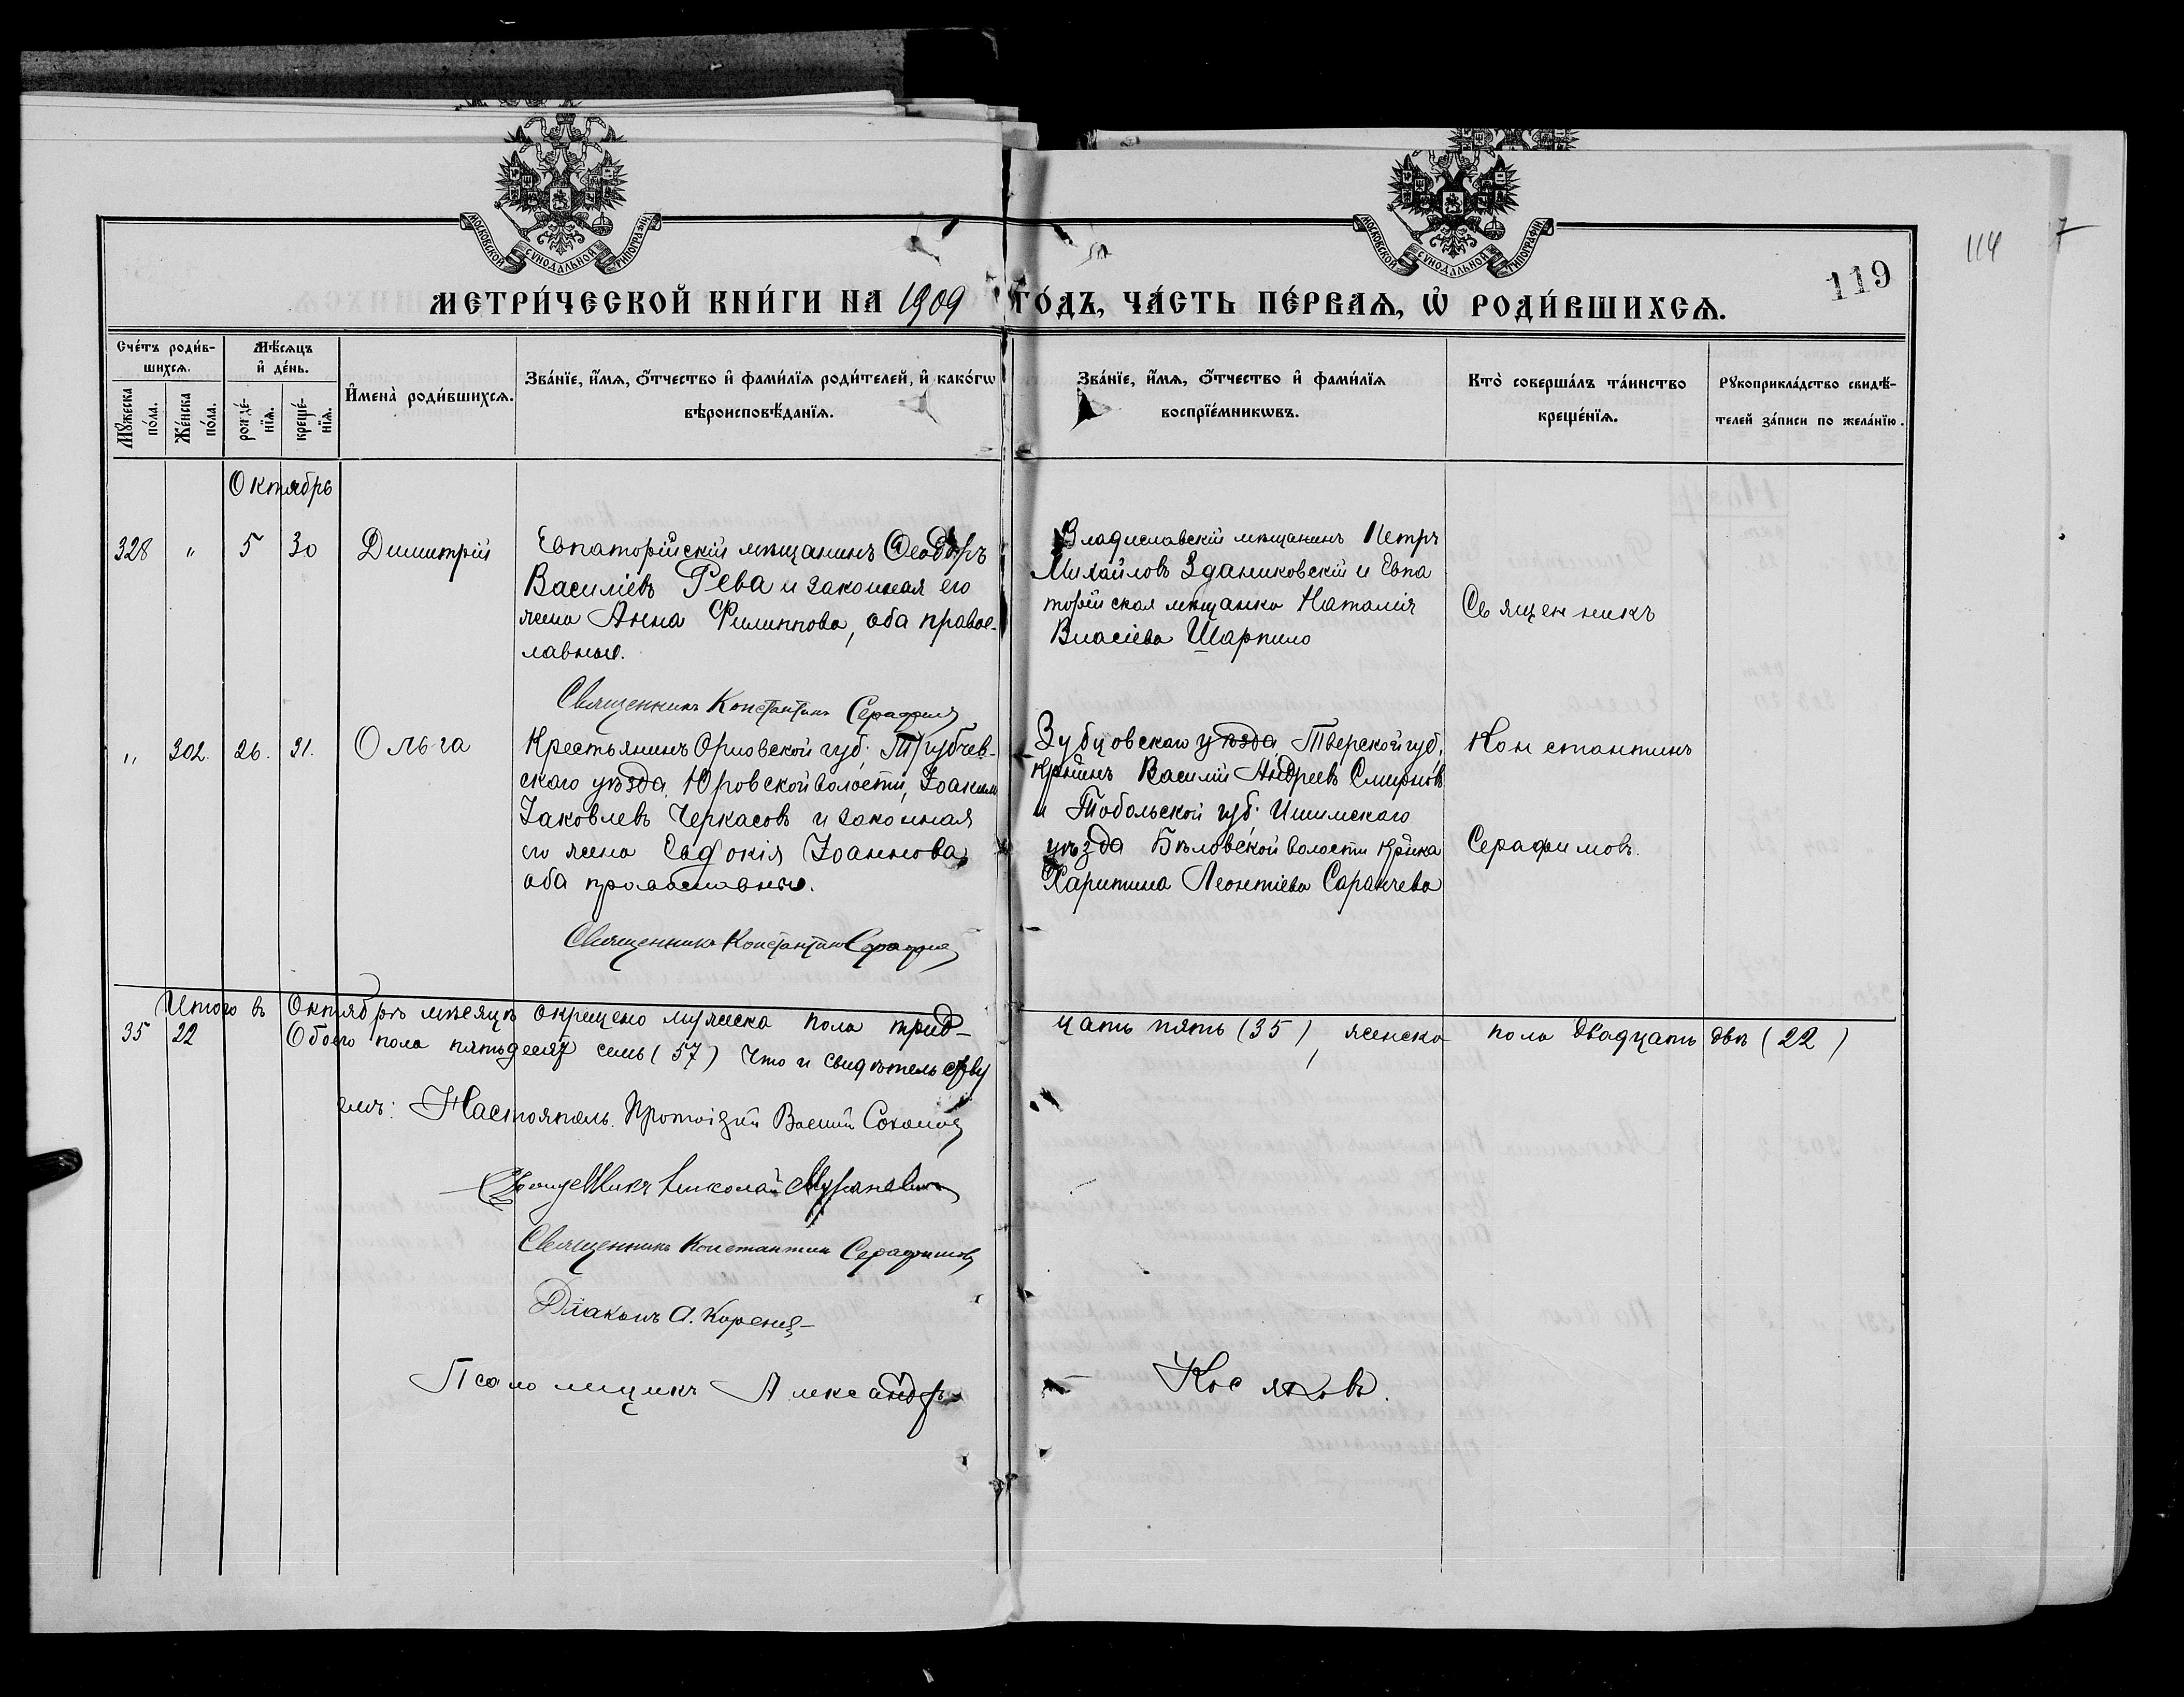 МОСКОВСКОЙ СѴНОДАЛЬНОЙ ТИПОГРАФІИ
МОСКОВСКОЙ СѴНОДАЛЬНОЙ ТИПОГРАФІИ
114
7
119
МЕТРИ́ЧЕСКОЙ КНИ́ГИ НА 1909 ГО́ДЪ, ЧА́СТЬ ПЕ́РВАѦ, Ѡ҆ РОДИ́ВШИХСѦ.
Сче́тъ роди́в-
шихсѧ.
Мѣ́сѧцъ
и҆ де́нь.
Мꙋ́жеска по́ла.
Же́нска по́ла.
рожде́-
нїѧ.
креще́-
нїѧ.
И҆мена̀ роди́вшихсѧ.
Зва́нїе, и҆́мѧ, ѻ҆́тчество и҆ фами́лїѧ роди́телей, и҆ како́гѡ
вѣроисповѣ́данїѧ.
Зва́нїе, и҆́мѧ, ѻ҆́тчество и҆ фами́лїѧ
воспрїе́мникѡвъ.
Кто̀ соверша́лъ та́инство
креще́нїѧ.
Рꙋкоприкла́дство свидѣ́-
телей за́писи по жела́нїю.
Октябрь
328 " 5 30 Димитрій
Евпаторійскій мѣщанинъ Ѳеодоръ
Василіевъ Рева и законная его
жена Анна Филиппова, оба правос-
лавные.
Священникъ Константинъ Серафимовъ
Владиславскій мѣщанинъ Петръ
Михайловъ Здановскій и Евпа
торійская мѣщанка Наталія
Власіева Шарпило
Священникъ
" 302. 26. 31. Ольга
Крестьянинъ Орловской губ. Трубчев-
скаго уѣзда, Юровской волости, Іоакимъ
Іаковлевъ Черкасовъ и законная
его жена Евдокія Іоаннова,
оба православные.
Священникъ Константинъ Серафимовъ
Зубцовскаго уѣзда, Тверской губ,
кр-нинъ Василій Андреевъ Смирновъ
и Тобольской губ. Ишимскаго
уѣзда Бѣловской волости кр-нка
Харитина Леонтіева Саранчева
Константинъ
Серафимовъ.
Итого въ Октябрѣ мѣсяцѣ окрещено мужеска пола трид-
цать пять (35), женска пола двадцать двѣ (22)
35 22 Обоего пола пятьдесятъ семь (57) Что и свидѣтельству
емъ: Настоятель Протоіерей Василій Соколовъ
Священникъ Николай
Священникъ Константинъ Серафимовъ
Діаконъ А. Коренев
Псаломщикъ Александръ Косяковъ.